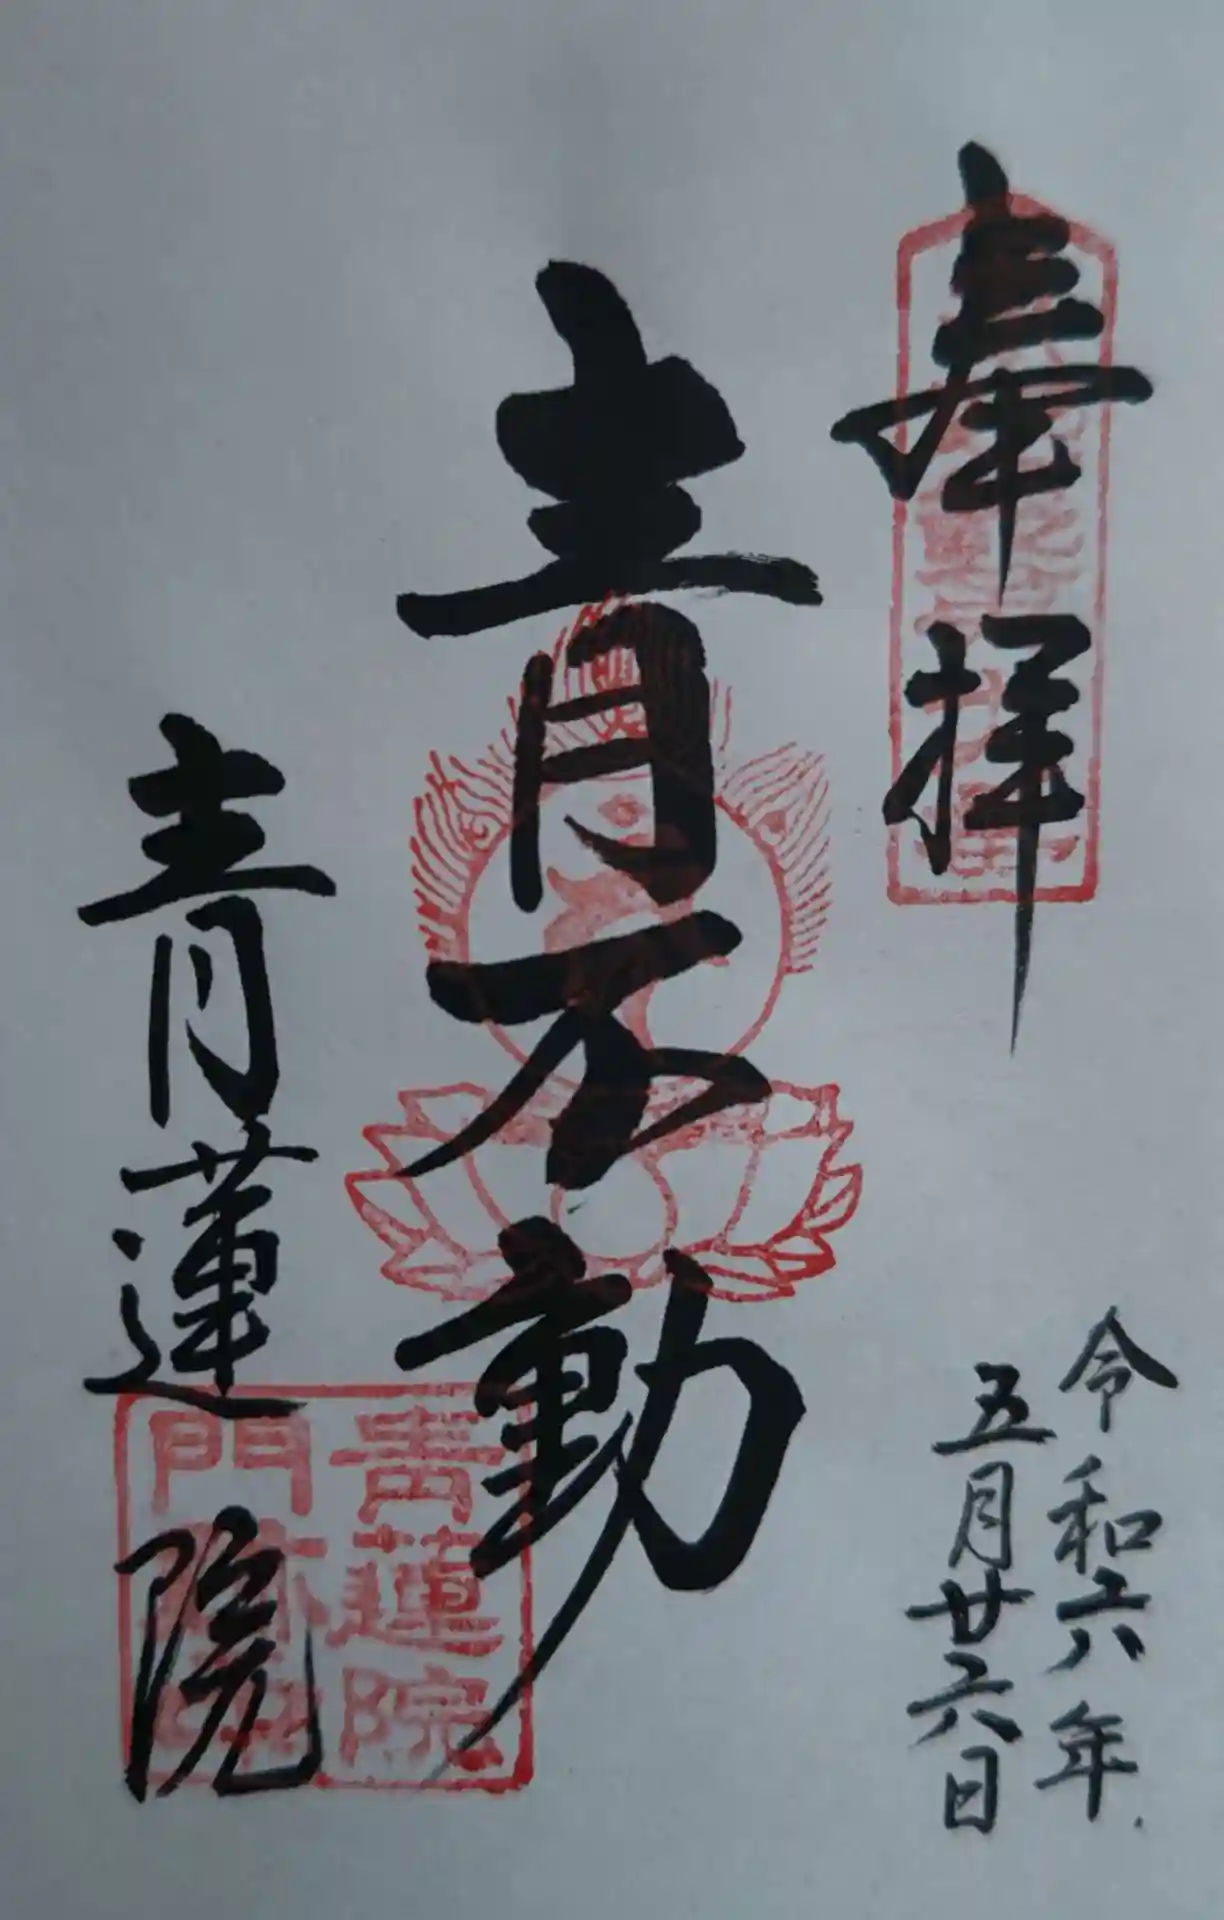 奉拝
令和六年
五月廿六日
青不動
青蓮院
青蓮院
門